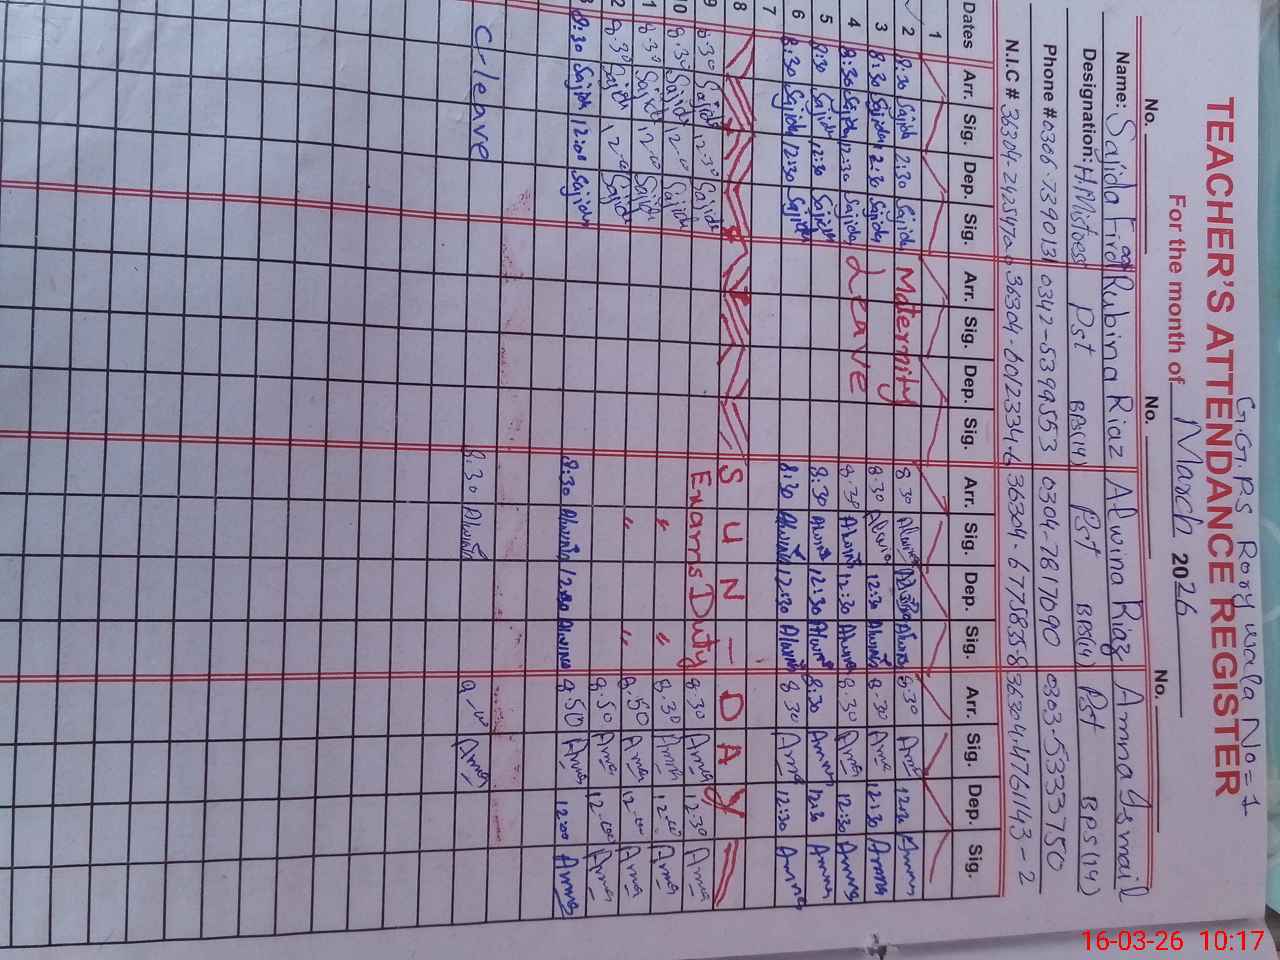 G.G.PS Roxy wala No=1
TEACHER'S ATTENDANCE REGISTER
For the month of March 2026
No. No. No. No.
Name: Sajida Rubina Riaz Alwina Riaz Amna Ismail
Designation: H/Mistress Pst BPS(14) Pst BPS(14) Pst BPS(14)
Phone # 0306-7390131 0342-5399553 0304-7817090 0303-5333750
N.I.C # 36304-6012334-6 36304-6775835-8 36304-4761143-2
Dates Arr. Sig. Dep. Sig. Arr. Sig. Dep. Sig. Arr. Sig. Dep. Sig. Arr. Sig. Dep. Sig.
1
2 8:30 Sajida 2:30 Sajida Maternity 8:30 Alwina Alwina 8:30 Amna Amna
3 8:30 Sajida 12:30 Sajida 8:30 Alwina 12:30 Alwina 8:30 Amna 12:30 Amna
4 8:30 Sajida 12:30 Sajida Leave 8:30 Alwina 12:30 Alwina 8:30 Amna 12:30 Amna
5 8:30 Sajida 12:30 Sajida 8:30 Alwina 12:30 Alwina 8:30 Amna 12:3 Amna
6 8:30 Sajida 12:30 Sajida 8:30 Alwina 12:30 Alwina 8:30 Amna 12:30 Amna
7
8 S U N - D A Y
9 8:30 Sajida 12:30 Sajida Exams Duty 8:30 Amna 12:30 Amna
10 8:30 Sajida 12:0 Sajida " " 8:30 Amna 12:00 Amna
8:30 Sajida 12:0 Sajida " " 8:50 Amna 12:00 Amna
8:30 Sajida 12:0 Sajida 8:50 Amna 12:00 Amna
8:30 Sajida 12:00 Sajida 8:30 Alwina 12:30 Alwina 8:50 Amna 12:00 Amna
C-leave 8:30 Alwina 9:00 Amna
16-03-26 10:17